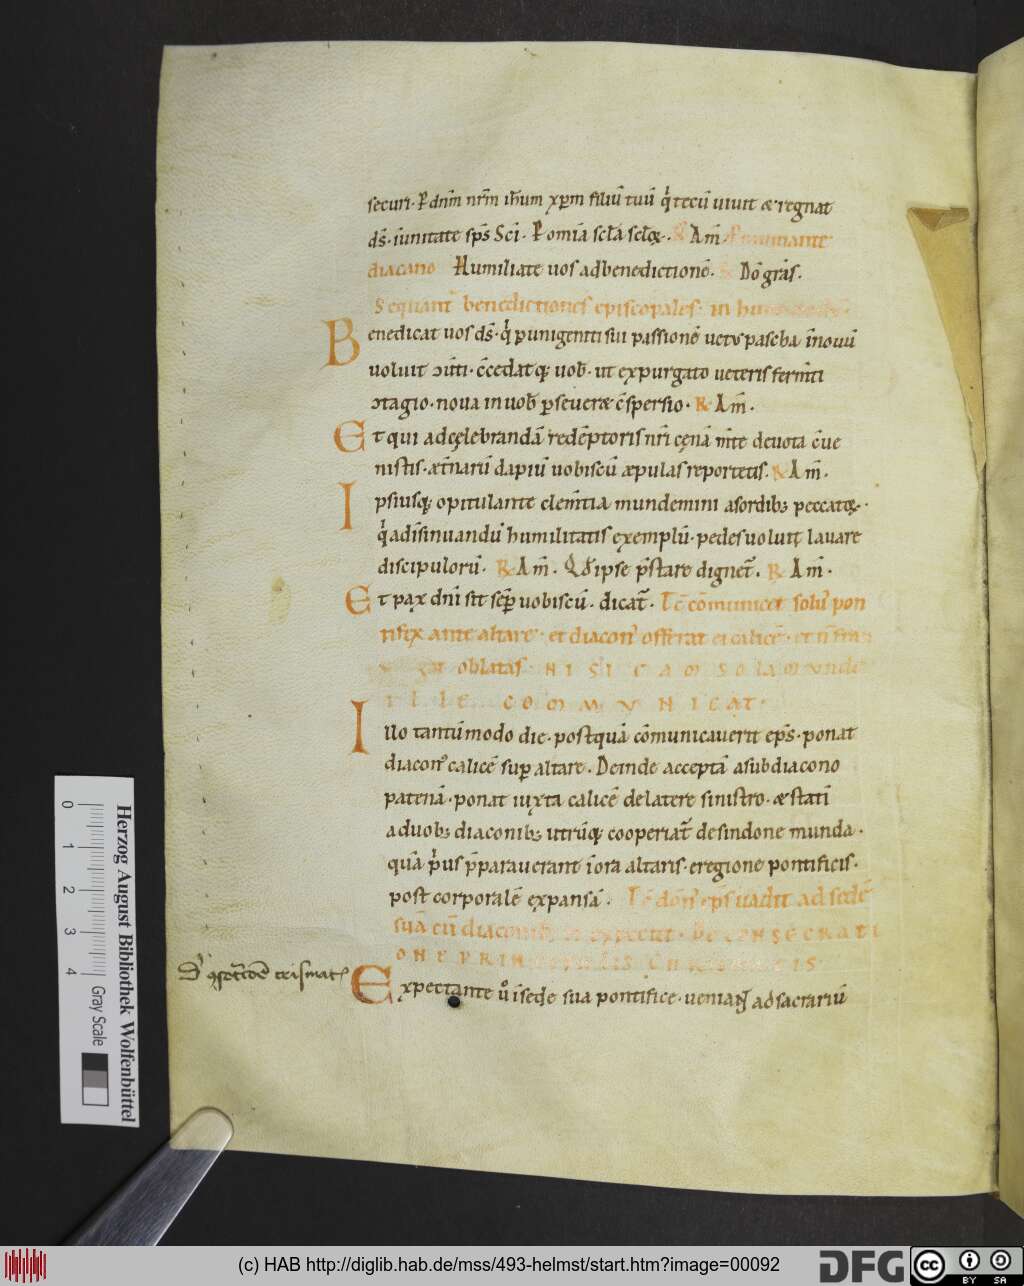 securi. P dnm nrm ihm xpm filiū tuū q tecū uiuit & regnat
ds. iunitate sps sci. P omia scla scloꝝ. ℟ Am. Pnuntiante
diacono Humiliate uos ad benedictionē. ℟ Dō grās.
Sequant benedictiones episcopales in
Benedicat uos ds. q p unigeniti sui passionē uetus pascha inouū
uoluit ɔuti. ccedatq; uob. ut expurgato ueteris fermti
ɔtagio. noua in uob pseueret cspersio. ℟ Am.
Et qui ad cęlebrandā redēptoris nri cęnā mte deuota cue
nistis. ætnarū dapiū uobiscū æpulas reportetis. ℟ Am.
Ipsiusq; opitulante clemtia mundemini a sordib; peccatoꝝ.
q ad insinuandū humilitatis exemplū. pedes uoluit lauare
discipulorū. ℟ Am. Qd ipse pstare dignet. ℟ Am.
Et pax dni sit sēp uobiscū. dicat. Tc cōmunicet solus pon
tifex ante altare. et diacon offerat ei calicē. et
oblatas. NISI
ILLE COMMVNICAT.
Illo tantūmodo die. postquā cōmunicauerit eps. ponat
diacon calicē sup altare. Deinde acceptā a subdiacono
patenā. ponat iuxta calicē de latere sinistro. & stati
a duob; diaconib; utrūq; cooperiat de sindone munda.
quā prius pparauerant i ora altaris. e regione pontificis.
post corporalē expansā. Tc dōn eps uadit ad sedē
suā cū diaconib; et expectet. DE CONSECRATI
ONE PRIN CIPALIS CHRISMATIS
Expectante ū i sede sua pontifice. ueniant ad sacrariū
D ɔsecratione crismatis
0 1 2 3 4
Gray Scale
Herzog August Bibliothek Wolfenbüttel
(c) HAB http://diglib.hab.de/mss/493-helmst/start.htm?image=00092
DFG
cc BY SA